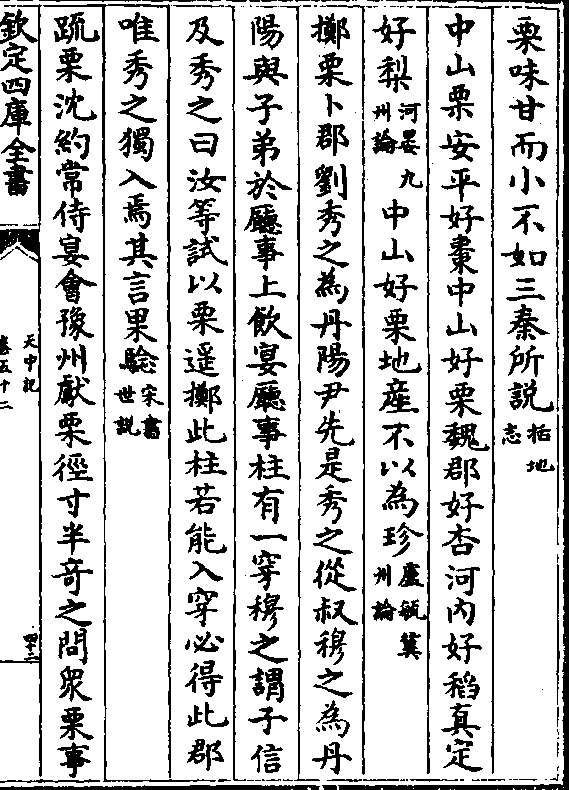 栗味甘而小不如三秦所說括地志
中山栗安平好棗中山好栗魏郡好杏河內好稻真定
好梨何晏九州論中山好栗地產不以為珍盧毓冀州論
擲栗卜郡劉秀之為丹陽尹先是秀之從叔穆之為丹
陽與子弟於廳事上飲宴廳事柱有一穿穆之謂子信
及秀之曰汝等試以栗遥擲此柱若能入穿必得此郡
唯秀之獨入焉其言果驗宋書世說
疏栗沈約常侍宴會豫州獻栗徑寸半竒之問衆栗事
欽定四庫全書
天中記
卷五十二
四十二